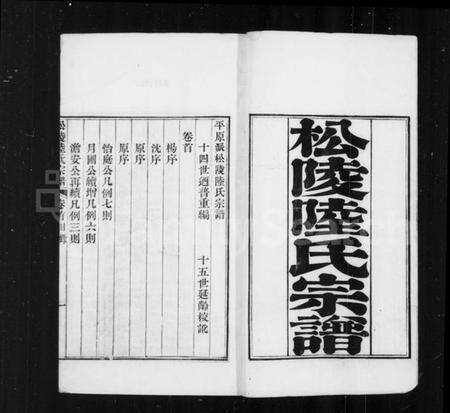 松陵陸氏宗譜
平原派松陵陸氏宗譜
十四世迺普重編
十五世延齡校訛
卷首
楊序
沈序
原序
原序
怡庭公凡例七則
月圃公續增凡例六則
澹安公再續凡例三則
松陵陸氏宗譜 卷首目錄